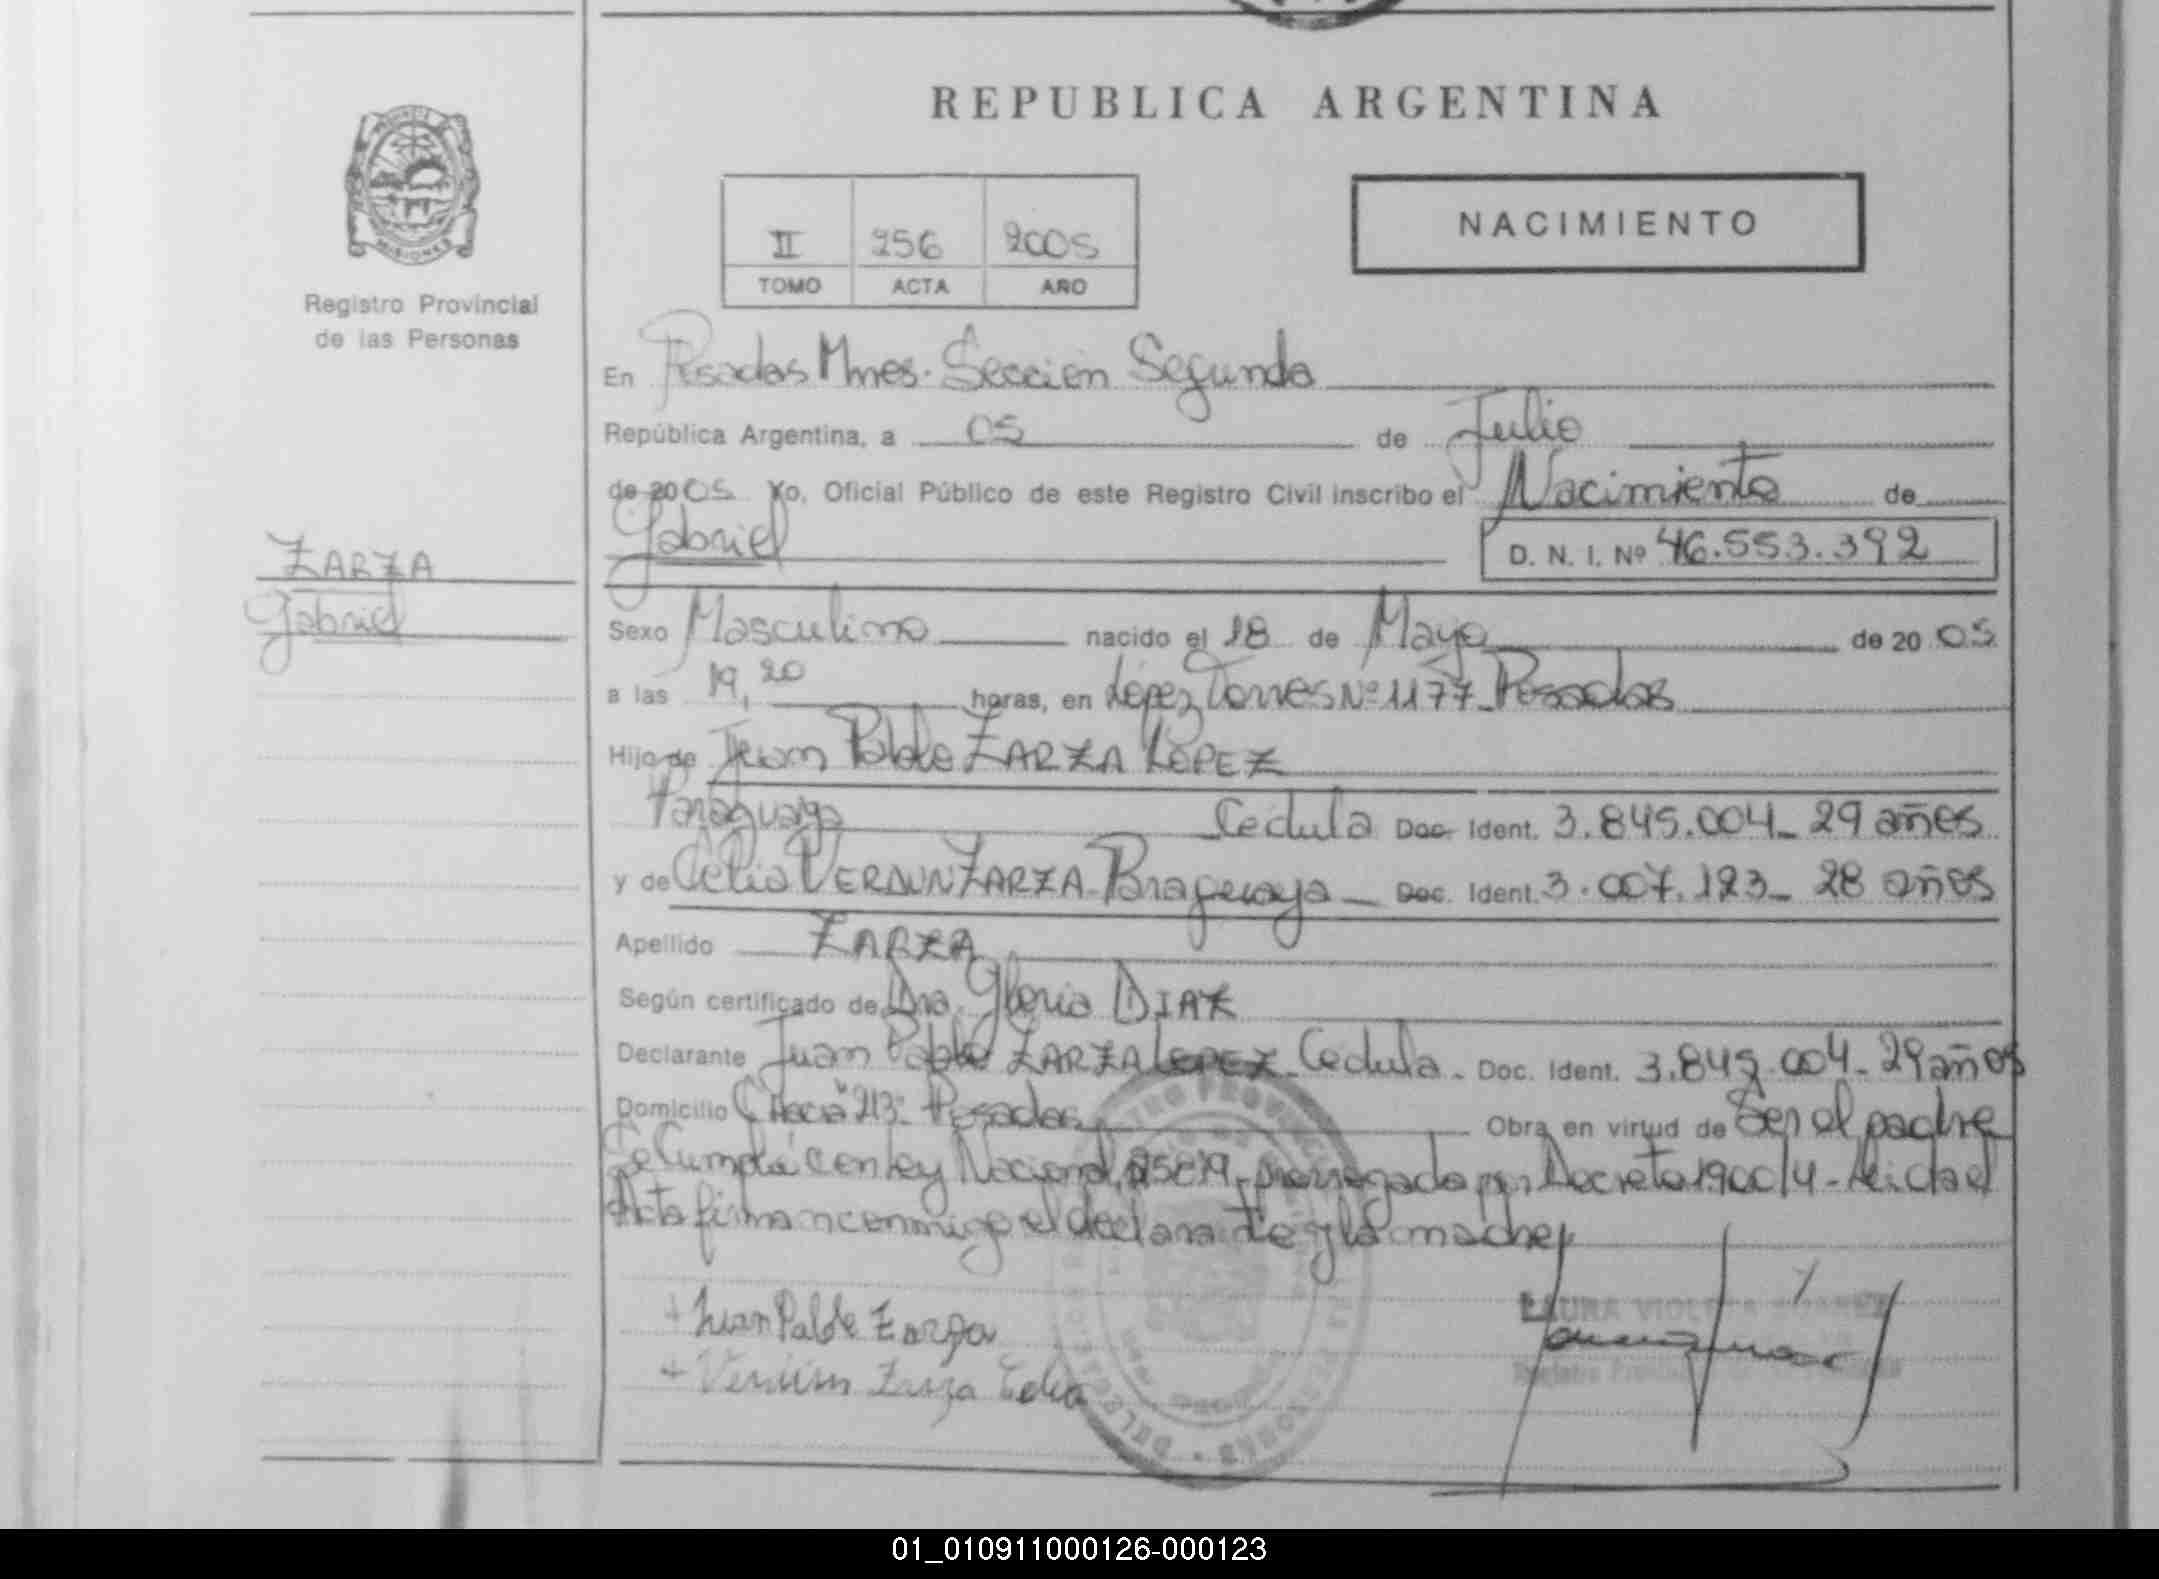 REPUBLICA ARGENTINA
MISIONES
Registro Provincial
de las Personas
II 256 2005
TOMO ACTA AÑO
NACIMIENTO
En Posadas Mnes. Sección Segunda
República Argentina, a 05 de Julio
de 2005 Yo, Oficial Público de este Registro Civil inscribo el Nacimiento de
Gabriel
D. N. I. Nº 46.553.392
ZARZA
Gabriel
Sexo Masculino nacido el 18 de Mayo de 20 05
a las 19,20 horas, en López Torres Nº 1177 Posadas
Hijo de Juan Pablo ZARZA LOPEZ
Paraguaya Cedula Doc. Ident. 3.845.004_ 29 años
y de Celia VERDUN ZARZA_Paraguaya_ Doc. Ident. 3.007.123_ 28 años
Apellido ZARZA
Según certificado de Dra. Gloria DIAZ
Declarante Juan Pablo ZARZA LOPEZ_Cedula_ Doc. Ident. 3.845.004_ 29 años
Domicilio Chacra 213_ Posadas Obra en virtud de Ser el padre
Se Cumple con ley Nacional 25819_prorrogada por Decreto 1900/4_Leida el
Acta firman conmigo el declarante y la madre
+ Juan Pablo Zarza
+ Verdún Zarza Celia
LAURA VIOLETA SUAREZ
Registro
01_010911000126-000123